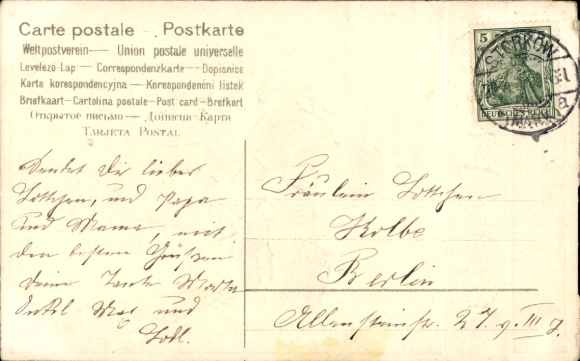 Carte postale - Postkarte
Weltpostverein — Union postale universelle
Levelező-Lap — Correspondenzkarte — Dopisnice
Karta korespondencyjna — Korespondenční lístek
Briefkaart - Cartolina postale - Post card - Brefkort
Открытое письмо — Дописна Карта
TARJETA POSTAL
5
STORKOW
(MARK)
a
DEUTSCHES REICH
Sendet Dir liebes
Lottchen, und Papa
und Mama, mit
den besten Grüßen
Deine Tante Marta
Onkel Max und
Fräulein Lottchen
Kolbe
Berlin
Allensteinstr. 27. g. III